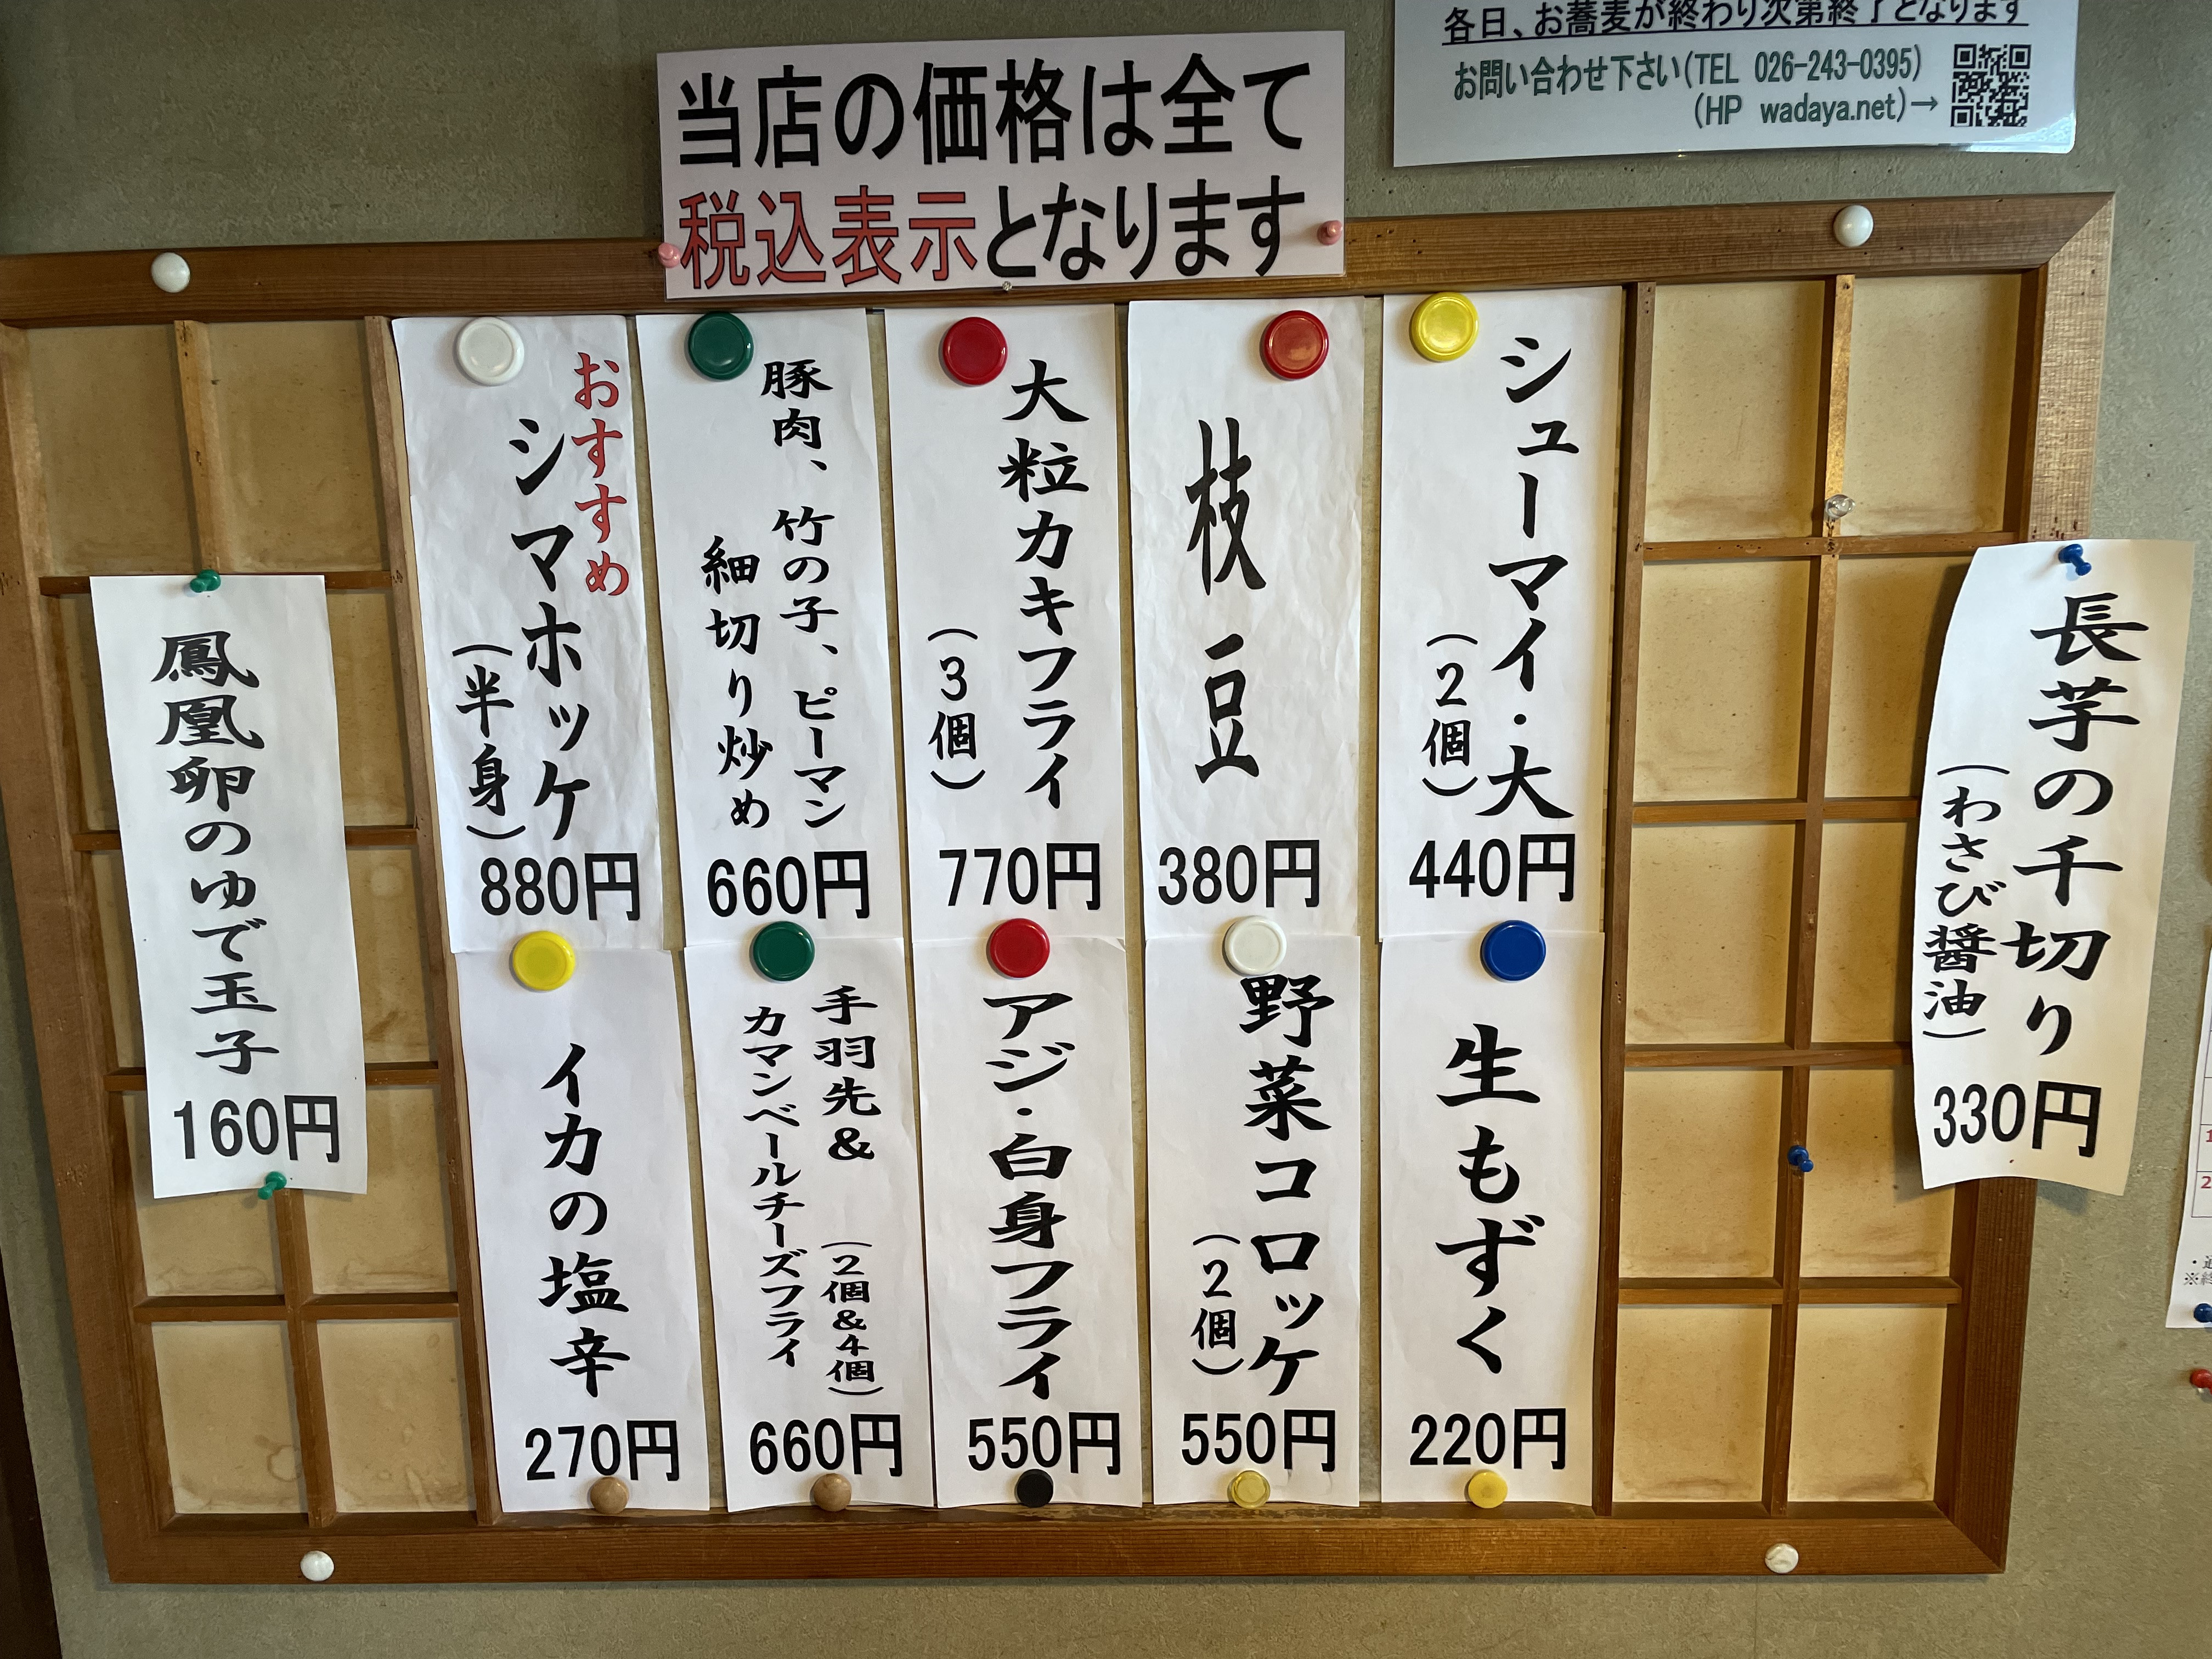 各日、お蕎麦が終わり次第終了となります
お問い合わせ下さい(TEL 026-243-0395)
(HP wadaya.net)→
当店の価格は全て
税込表示となります
長芋の千切り
(わさび醤油)
330円
シューマイ・大
(2個)
440円
枝豆
380円
大粒カキフライ
(3個)
770円
豚肉、竹の子、ピーマン
細切り炒め
660円
おすすめ
シマホッケ
(半身)
880円
生もずく
220円
野菜コロッケ
(2個)
550円
アジ・白身フライ
550円
手羽先& (2個&4個)
カマンベールチーズフライ
660円
イカの塩辛
270円
鳳凰卵のゆで玉子
160円